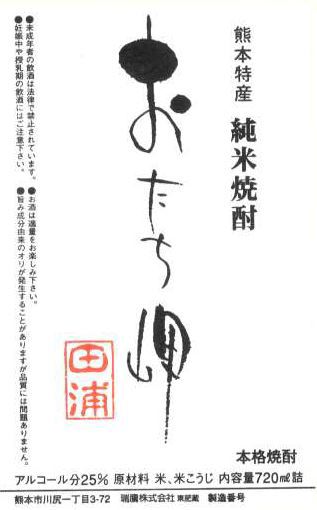 熊本特産
純米焼酎
おたち岬
田浦
●お酒は適量をお楽しみ下さい。
●旨み成分由来のオリが発生することがありますが品質には問題ありません。
●未成年者の飲酒は法律で禁止されています。
●妊娠中や授乳期の飲酒にはご注意下さい。
本格焼酎
アルコール分25% 原材料 米、米こうじ 内容量720㎖詰
熊本市川尻一丁目3-72 瑞鷹株式会社 東肥蔵 製造番号